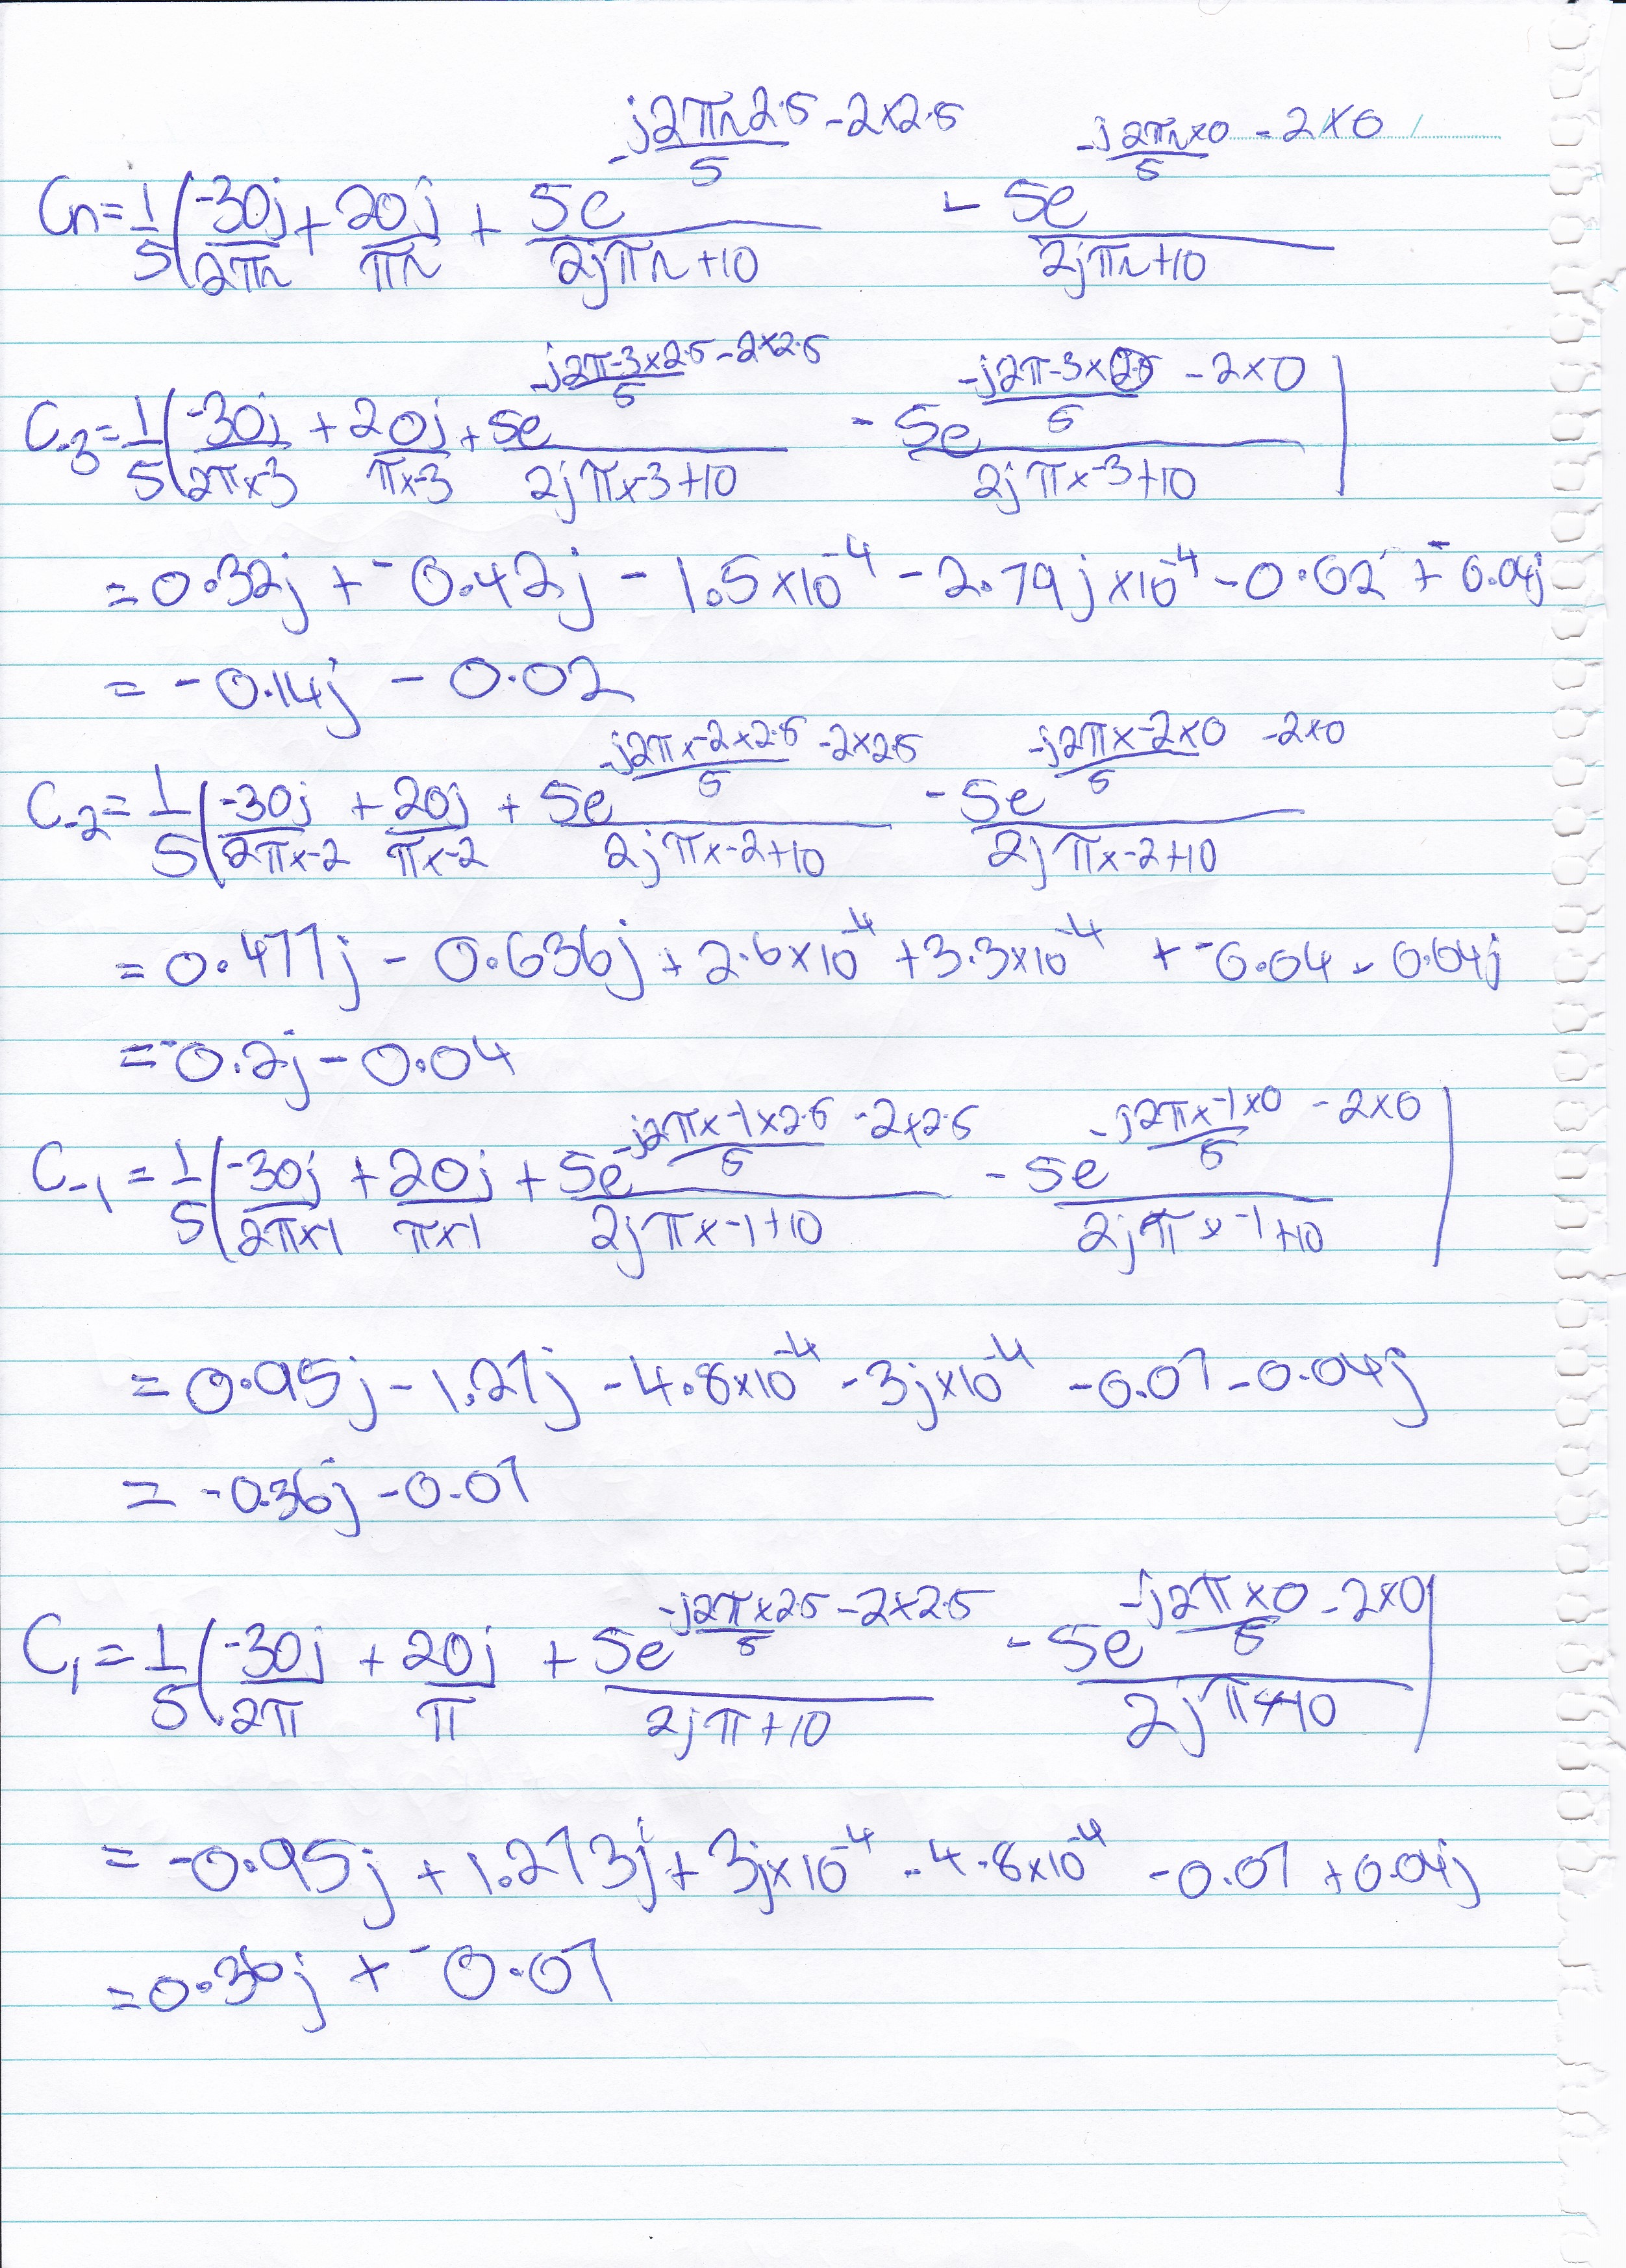 Cn = 1/5 ( -30j/2πn + 20j/πn + 5e^(-j2πn2.5/5 - 2×2.5) / 2jπn+10 - 5e^(-j2πn×0/5 - 2×0) / 2jπn+10
C-3 = 1/5 ( -30j/2π×-3 + 20j/π×-3 + 5e^(-j2π-3×2.5/5 - 2×2.5) / 2jπ×-3+10 - 5e^(-j2π-3×0/5 - 2×0) / 2jπ×-3+10 |
= 0.32j + -0.42j - 1.5×10^-4 - 2.79j×10^-4 - 0.02 + -0.04j
= -0.14j - 0.02
C-2 = 1/5 ( -30j/2π×-2 + 20j/π×-2 + 5e^(-j2π×-2×2.5/5 - 2×2.5) / 2jπ×-2+10 - 5e^(-j2π×-2×0/5 - 2×0) / 2jπ×-2+10
= 0.477j - 0.636j + 2.6×10^-4 + 3.3×10^-4 + -0.04 - 0.04j
= -0.2j - 0.04
C-1 = 1/5 ( -30j/2π×1 + 20j/π×1 + 5e^(-j2π×-1×2.5/5 - 2×2.5) / 2jπ×-1+10 - 5e^(-j2π×-1×0/5 - 2×0) / 2jπ×-1+10 |
= 0.95j - 1.27j - 4.8×10^-4 - 3j×10^-4 - 0.07 - 0.04j
= -0.36j - 0.07
C1 = 1/5 ( -30j/2π + 20j/π + 5e^(-j2π×2.5/5 - 2×2.5) / 2jπ+10 - 5e^(-j2π×0/5 - 2×0) / 2jπ+10 |
= -0.95j + 1.273j + 3j×10^-4 - 4.8×10^-4 - 0.07 + 0.04j
= 0.36j + -0.07